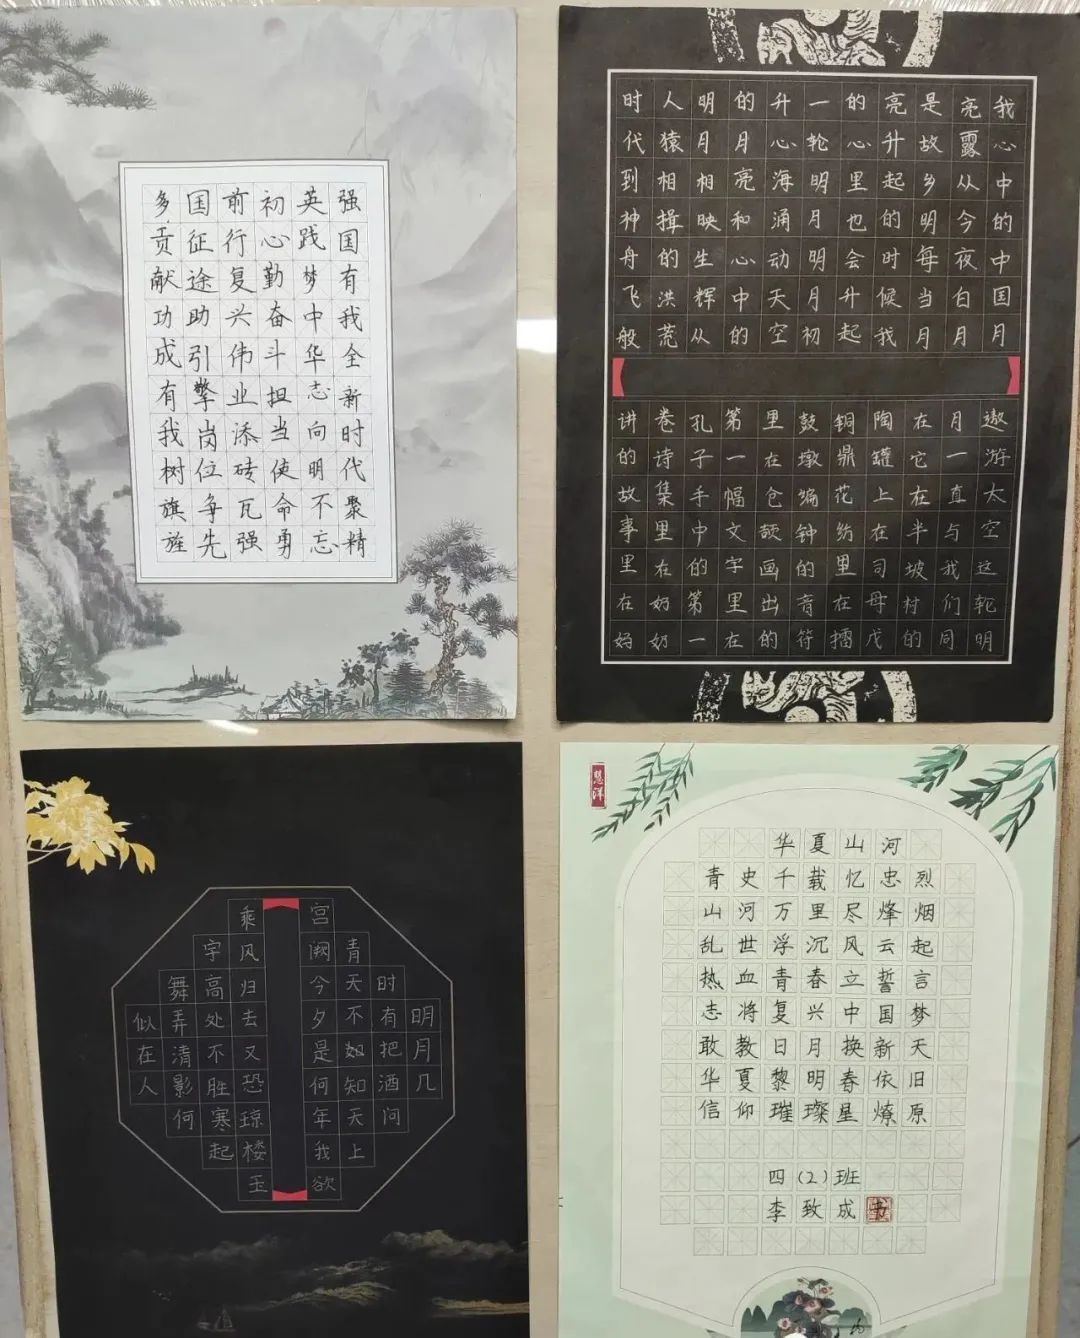 强国有我全新时代聚精
英践梦中华志向明不忘
初心勤奋斗担当使命勇
前行复兴伟业添砖瓦强
国征途助引擎岗位争先
多贡献功成有我树旗旌
我心中的中国月
亮露从今夜白月
是故乡明每当月
亮升起的时候我
的心里也会升起
一轮明月明月初
升心海涌动天空
的月亮和心中的
明月相映生辉从
人猿相揖的洪荒
时代到神舟飞般
遨游太空这轮明
月一直与我们同
在它在半坡村的
陶罐上在司母戊
铜鼎花纹里在擂
鼓墩编钟的音符
里在仓颉画出的
第一幅文字里在
孔子手中的第一
卷诗集里在奶奶
讲的故事里在妈
明月几
时有把酒问
青天不如知天上
宫阙今夕是何年我欲
乘风归去又恐琼楼玉
宇高处不胜寒起
舞弄清影何
似在人
慧洋
华夏山河
青史千载忆忠烈
山河万里尽烽烟
乱世浮沉风云起
热血青春立誓言
志将复兴中国梦
敢教日月换新天
华夏黎明春依旧
信仰璀璨星燎原
四(2)班
李致成书